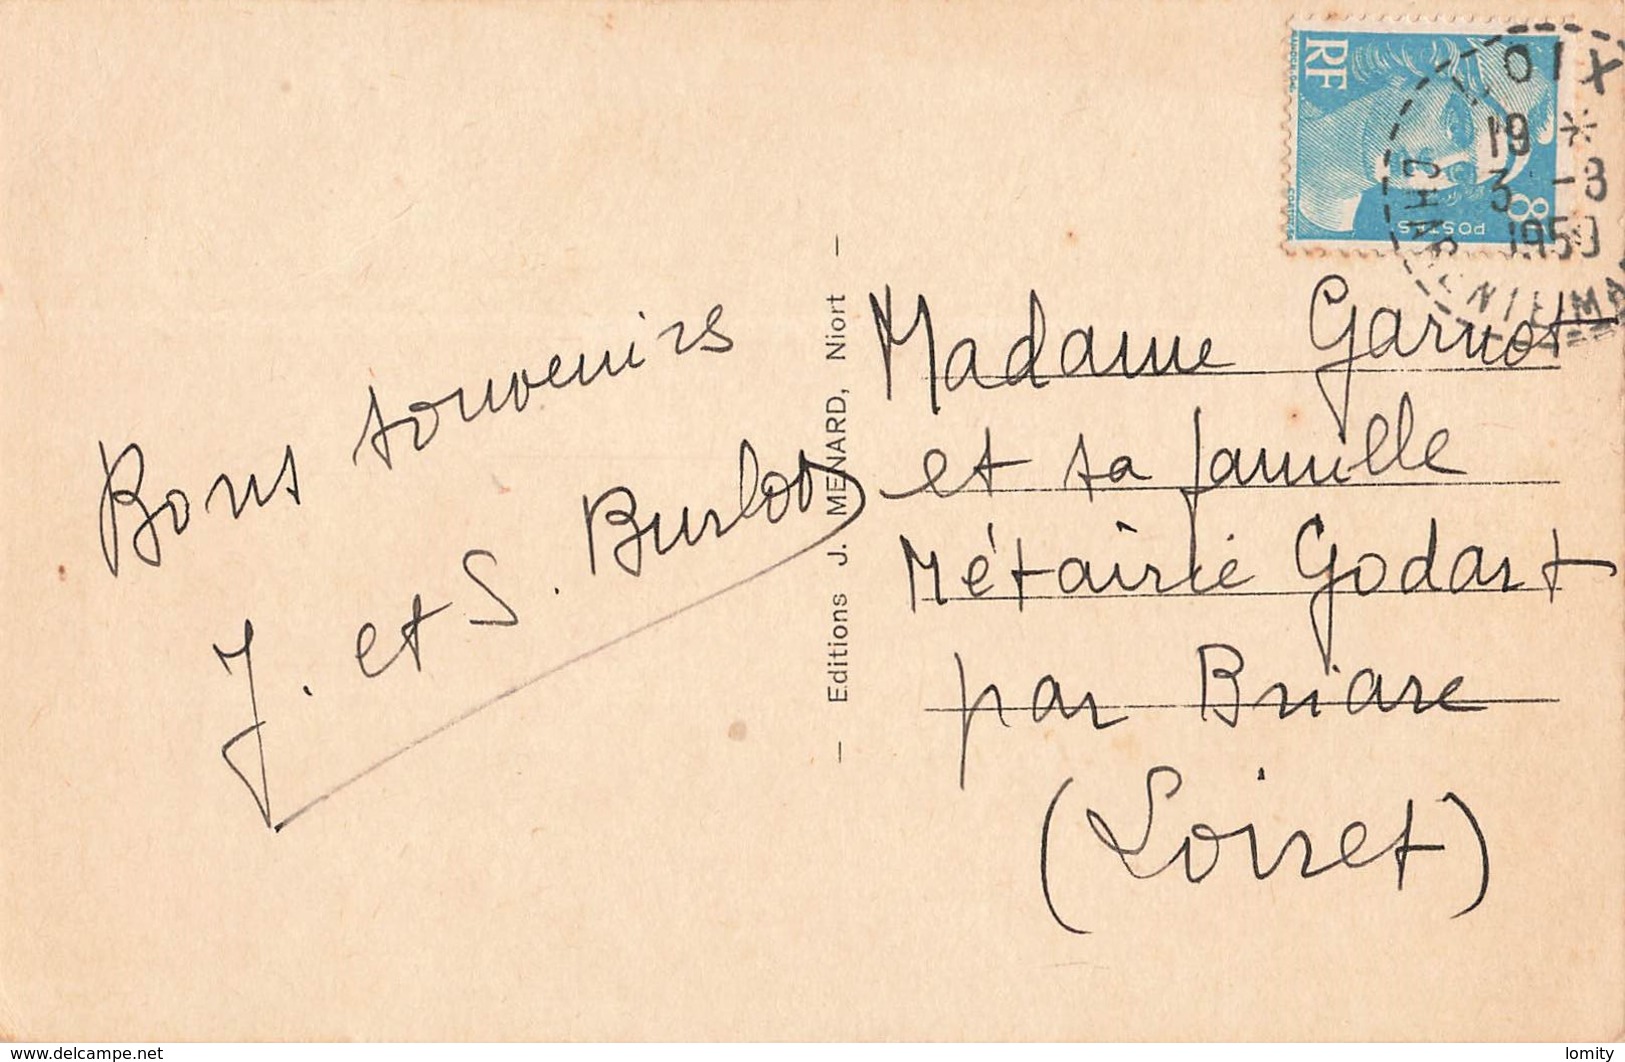 Bons souvenirs
J. et S. Burlot
— Editions J. MENARD, Niort —
RF
8
POSTES
OIX
19 *
3 -8
1950
Madame Garnot
et sa famille
Métairie Godart
par Briare
(Loiret)
www.delcampe.net
lomity